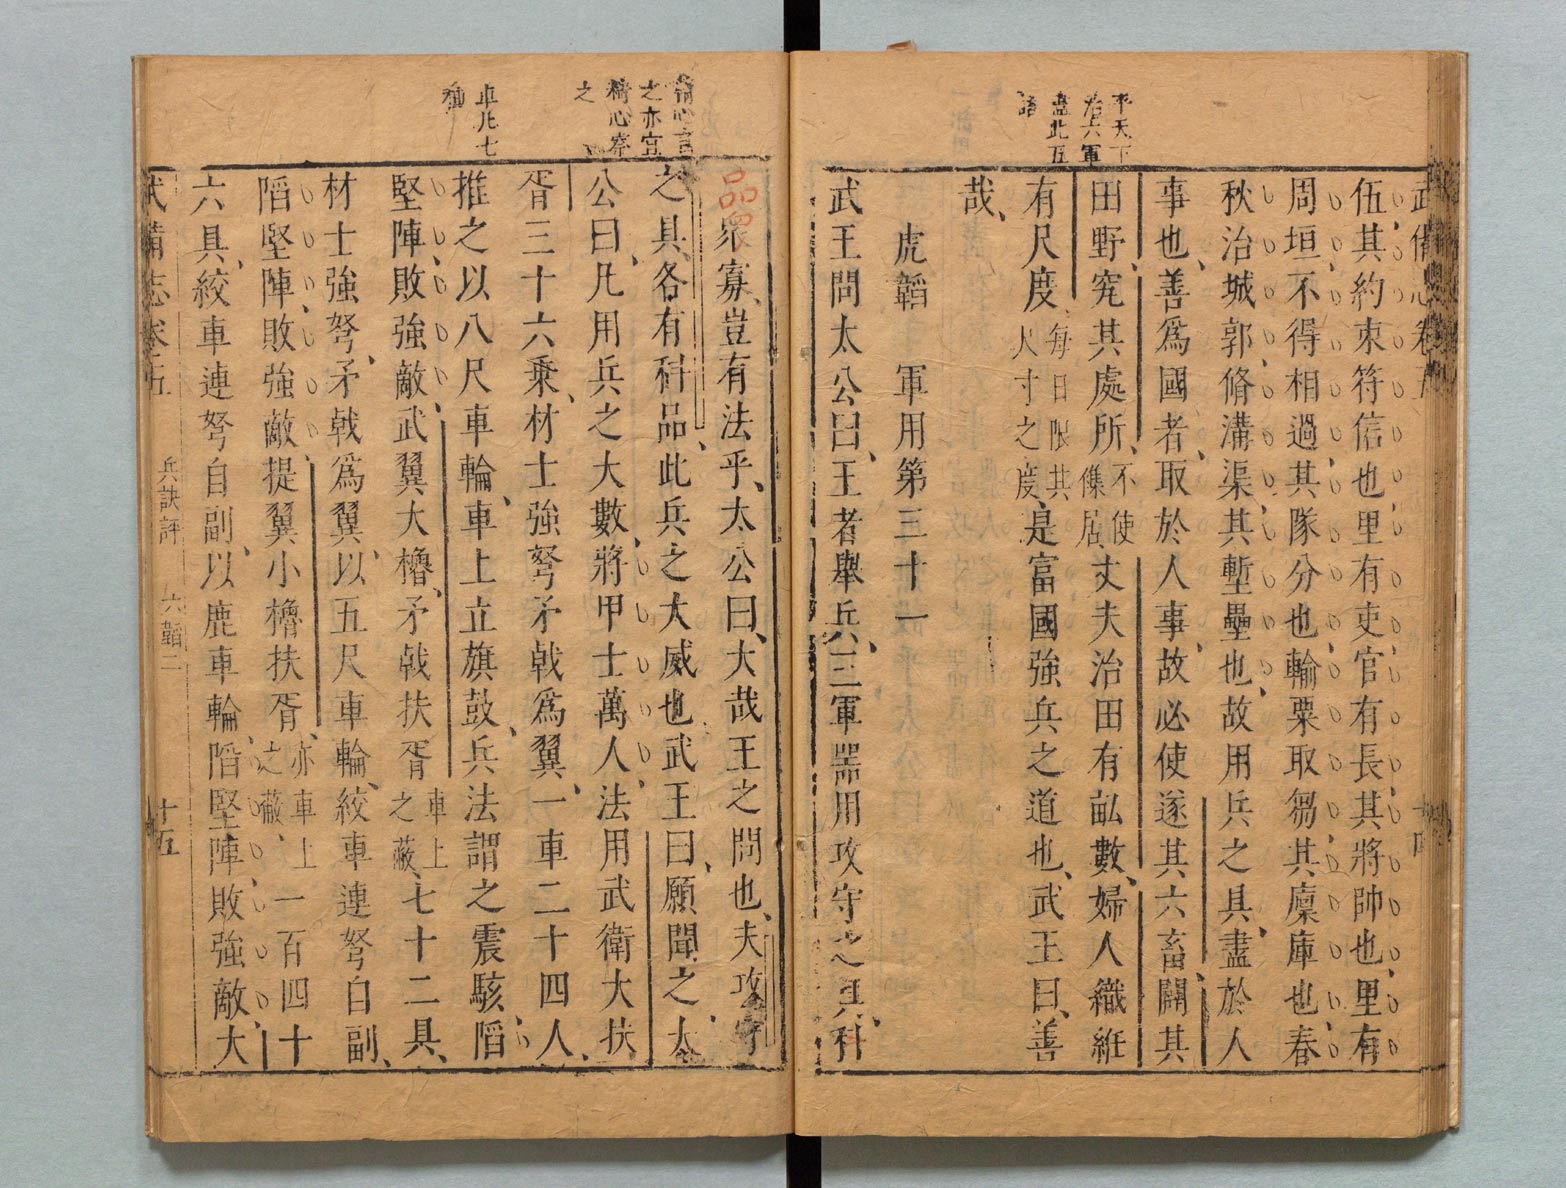 平天下
治六軍
盡此五
語
武備志卷五
十四
伍、其約束符信也、里有吏、官有長、其將帥也、里有
周垣、不得相過、其隊分也、輸粟取芻、其廩庫也、春
秋治城郭、脩溝渠、其塹壘也、故用兵之具、盡於人
事也、善爲國者、取於人事、故必使遂其六畜、闢其
田野、究其處所、不使傑居、丈夫治田有畝數、婦人織紝
有尺度、每日限其尺寸之度、是富國強兵之道也、武王曰、善
哉、
虎韜　軍用第三十一
武王問太公曰、王者舉兵、三軍器用、攻守之具、科
稽心言
之亦宜
稽心察
之
車凡七
種
品衆寡、豈有法乎、太公曰、大哉王之問也、夫攻守
之具、各有科品、此兵之大威也、武王曰、願聞之、太
公曰、凡用兵之大數、將甲士萬人、法用武衛大扶
胥三十六乘、材士強弩矛戟爲翼、一車二十四人、
推之以八尺車輪、車上立旗鼓、兵法謂之震駭、陷
堅陣、敗強敵、武翼大櫓、矛戟扶胥車上之蔽、七十二具、
材士強弩、矛戟爲翼、以五尺車輪、絞車連弩自副、
陷堅陣、敗強敵、提翼小櫓扶胥、亦車上之蔽、一百四十
六具、絞車連弩自副、以鹿車輪、陷堅陣、敗強敵、大
武備志卷五　兵訣評　六韜二　十五